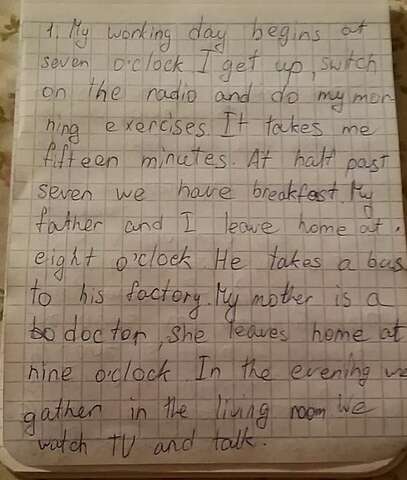 1. My working day begins at
seven o'clock I get up, switch
on the radio and do my mor
ning exercises. It takes me
fifteen minutes. At half past
seven we have breakfast. My
father and I leave home at
eight o'clock. He takes a bus
to his factory. My mother is a
doctor, she leaves home at
nine o'clock. In the evening we
gather in the living room we
watch TV and talk.